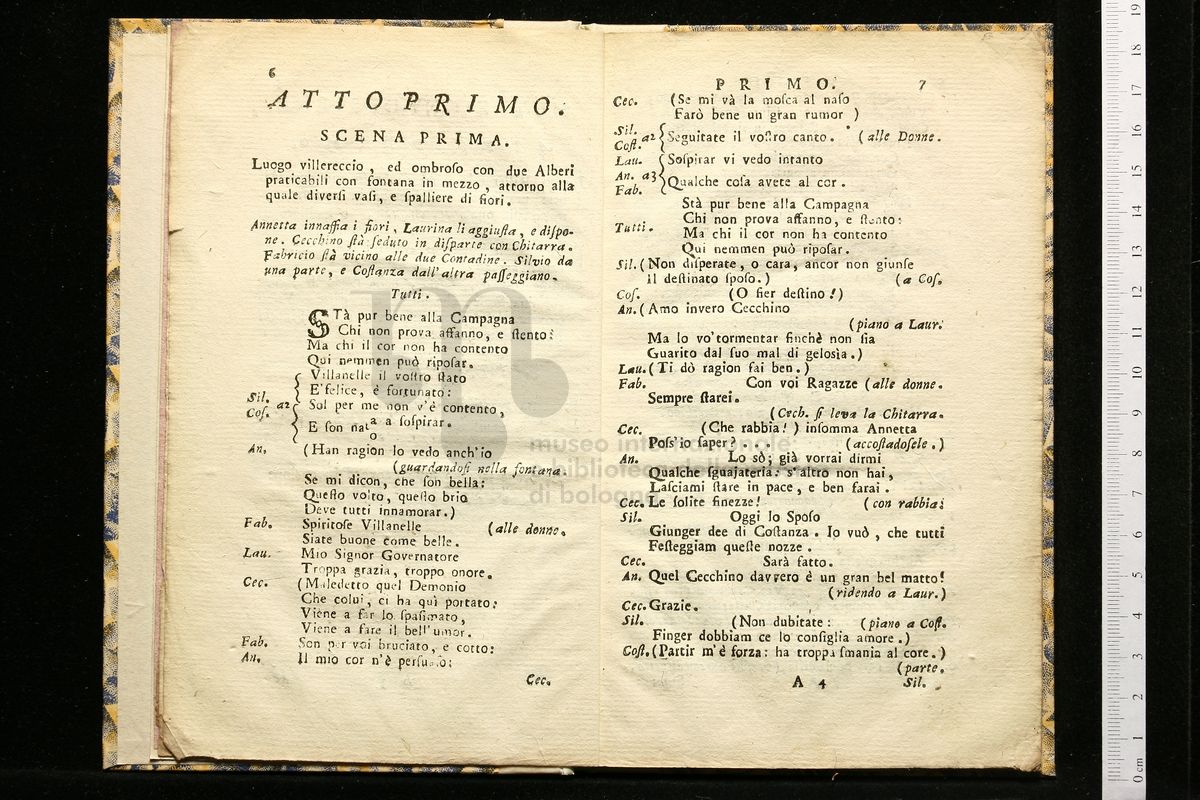 6
ATTO PRIMO.
SCENA PRIMA.
Luogo villereccio, ed ombroſo con due Alberi
praticabili con fontana in mezzo, attorno alla
quale diverſi vaſi, e ſpalliere di fiori.
Annetta innaffia i fiori, Laurina li aggiuſta, e diſpo-
ne. Cecchino ſtà ſeduto in diſparte con Chitarra.
Fabricio ſtà vicino alle due Contadine. Silvio da
una parte, e Coſtanza dall'altra paſſeggiano.
Tutti.
STà pur bene alla Campagna
Chi non prova affanno, e ſtento:
Ma chi il cor non ha contento
Qui nemmen può ripoſar.
Villanelle il voſtro ſtato
E' felice, è fortunato:
Sil. Coſ. a2 Sol per me non v'è contento,
E ſon nata o a ſoſpirar.
An. (Han ragion lo vedo anch'io
(guardandoſi nella fontana.
Se mi dicon, che ſon bella:
Queſto volto, queſto brio
Deve tutti innamorar.)
Fab. Spiritoſe Villanelle (alle donne.
Siate buone come belle.
Lau. Mio Signor Governatore
Troppa grazia, troppo onore.
Cec. (Maledetto quel Demonio
Che colui, ci ha quì portato:
Viene a far lo ſpaſimato,
Viene a fare il bell'umor.
Fab. Son per voi bruciato, e cotto:
An. Il mio cor n'è perſuaſo:
Cec.
PRIMO. 7
Cec. (Se mi và la moſca al naſo
Farò bene un gran rumor )
Sil. Coſt. a2 Seguitate il voſtro canto. (alle Donne.
Lau. Soſpirar vi vedo intanto
An. a3 Fab. Qualche coſa avete al cor.
Stà pur bene alla Campagna
Chi non prova affanno, e ſtento:
Tutti. Ma chi il cor non ha contento
Qui nemmen può ripoſar.
Sil. (Non diſperate, o cara, ancor non giunſe
il deſtinato ſpoſo.) (a Coſ.
Coſ. (O fier deſtino!)
An. (Amo invero Cecchino
(piano a Laur.
Ma lo vo' tormentar finchè non ſia
Guarito dal ſuo mal di geloſìa.)
Lau. (Ti dò ragion fai ben.)
Fab. Con voi Ragazze (alle donne.
Sempre ſtarei.
(Cech. ſi leva la Chitarra.
Cec. (Che rabbia!) inſomma Annetta
Poſs'io ſaper? .... (accoſtadoſele.)
An. Lo sò; già vorrai dirmi
Qualche ſguajateria: s'altro non hai,
Laſciami ſtare in pace, e ben farai.
Cec. Le ſolite finezze! (con rabbia;
Sil. Oggi lo Spoſo
Giunger dee di Coſtanza. Io vuò, che tutti
Feſteggiam queſte nozze.
Cec. Sarà fatto.
An. Quel Cecchino davvero è un gran bel matto!
(ridendo a Laur.)
Cec. Grazie.
Sil. (Non dubitate: (piano a Coſt.
Finger dobbiam ce lo conſiglia amore.)
Coſt. (Partir m'è forza: ha troppa ſmania al core.)
(parte.
A 4 Sil.
museo internazionale
e biblioteca della
di bologna